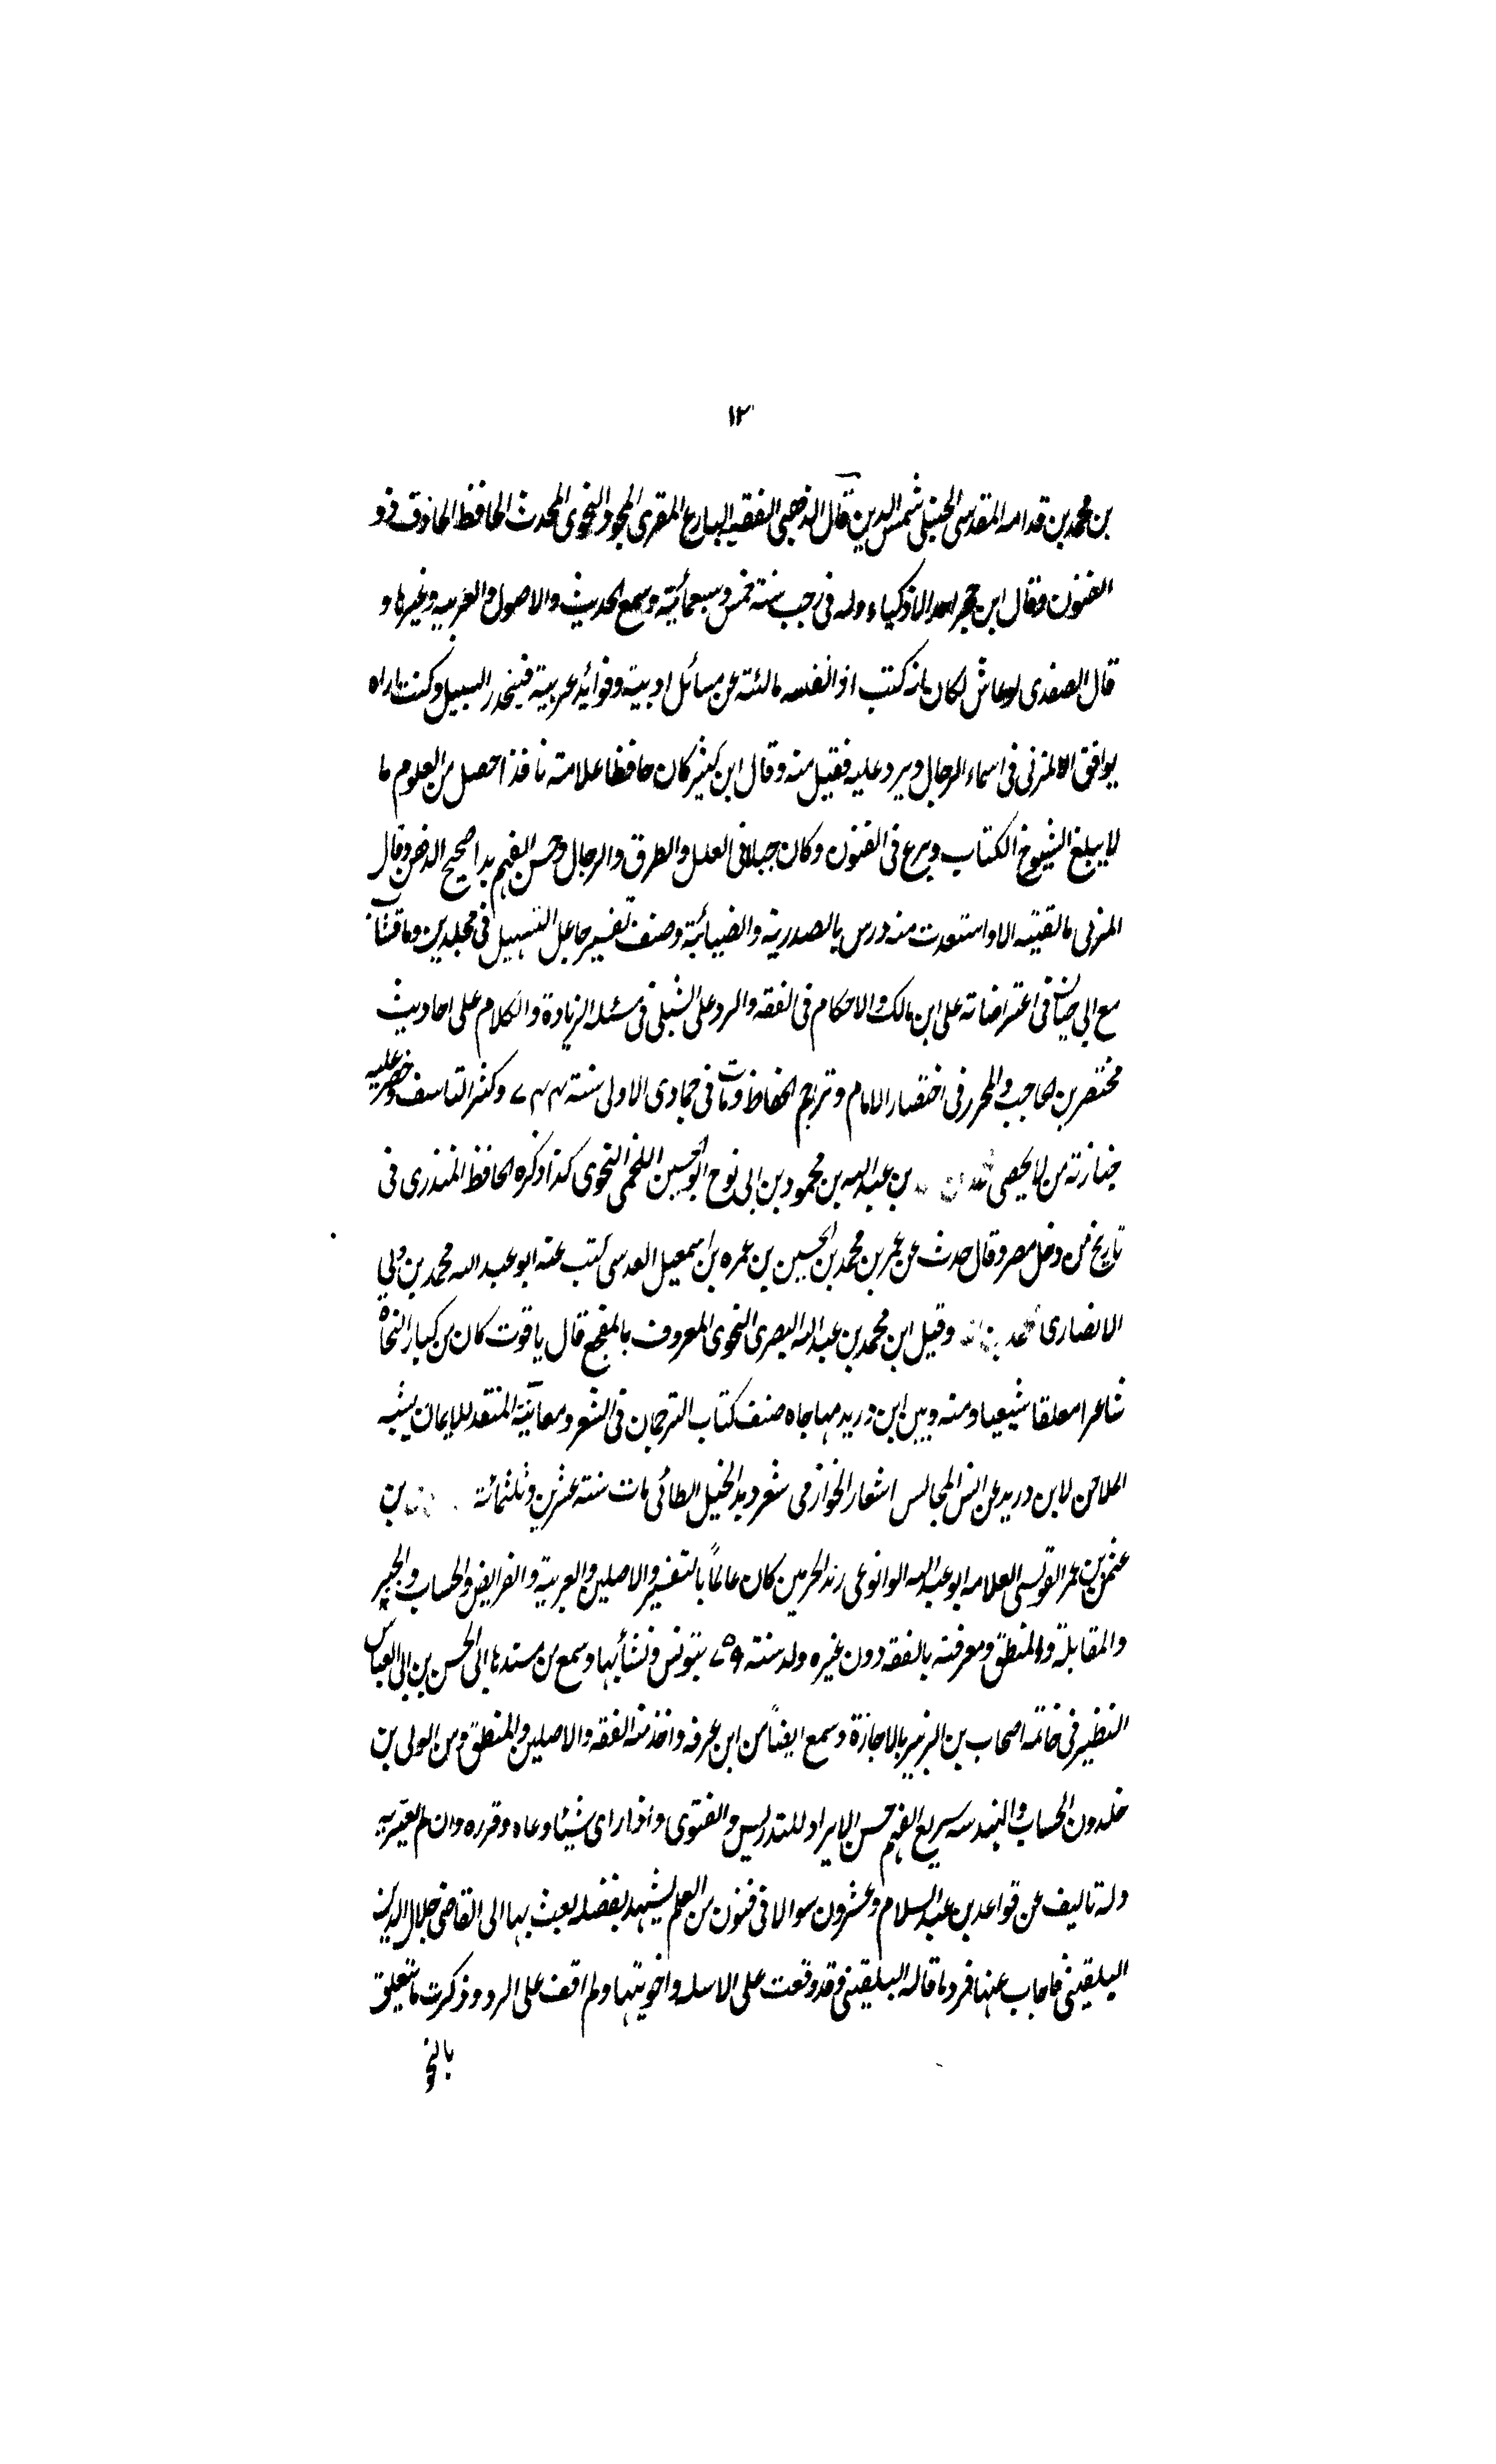 ١٢
بن محمد بن قدامه المقدسى الحنبلى شمس الدين قال الذهبى الفقيه البارع المقرى المجود النحوى المحدث الحافظ الحاذق ذو
الفنون وقال ابن حجر احد الاذكياء ولد فى رجب سنة خمس وسبعمائة وسمع الحديث والاصول والعربيه وغيرها و
قال الصفدى لو عاش لكان كنت اذا لقيته سالته عن مسائل ادبية وفوائد عربية فينحدر السيل وكنت اراه
يوافق المزنى فى اسماء الرجال ويرد عليه فقيل منه وقال ابن كثير كان حافظا علامة ناقدا حصل من العلوم ما
لايبلغ الشيوخ الكتاب وبرع فى الفنون وكان جبلا فى العلل والطرق والرجال وحسن الفهم جدا صحيح الذهن وقال
المزنى مالقيته الا واستفدت منه درس بالصدرية والضيائية وصنف تفسيرها على التسهيل فى مجلدين وماقشات
مع ابى حيان فى اعتراضاته على ابن مالك والاحكام فى الفقه والرد على السبكى فى مسئلة الزيادة والكلام على احاديث
مختصر بن الحاجب والمحرر فى اختصار الامام وتراجم الحفاظ ومات فى جمادى الاولى سنة ٧٤٤ وكثر التاسف عليه وحضر
جنازته من لا يحصى بن عبدالله بن محمود بن ابى نوح ابو الحسين اللخمى النحوى كذا ذكره الحافظ المنذرى فى
تاريخ من دخل مصر وقال حدث عن عمر بن محمد بن الحسين بن عمره بن اسمعيل العدسى كتب عنه ابو عبد الله محمد بن على
الانصارى وقيل ابن محمد بن عبدالله البصرى النحوى المعروف بالمفجع قال ياقوت كان من كبار النحاة
شاعرا مفلقا شيعيا ومنه وبين ابن دريد مهاجاه صنف كتاب الترجمان فى الشعر ومعانيه المنقد للايمان يشبه
الملاحن لابن دريد عن انس المجالس اشعار الخوازمى شعر زيد الخيل الطائى مات سنة عشرين وثلثمائة بن
عثمن بن عمر التونسى العلامه ابو عبدالله الوانوغى نزيل الحرمين كان عالمًا بالتفسير والاصلين والعربية والفرايض والحساب والجبر
والمقابلة والمنطق ومعرفته بالفقه دون غيره ولد سنة ٧٥٩ بتونس ونشأ بها وسمع من مسندها ابى الحسن بن ابى العباس
النظير فى خاتمة اصحاب بن الزبير بالاجازة وسمع ايضاً من ابن عرفه واخذ منه الفقه والاصلين والمنطق ومن الولى بن
خلدون الحساب والهندسه سريع الفهم حسن الايراد للتدريس والفتوى واذا راى شيئا وعاه وقرره وان لم يعتن به
وله تاليف عن قواعد بن عبد السلام وعشرون سوالا فى فنون من العلم يشهد بفضله بعث بها الى القاضى جلال الدين
البلقينى فاجاب عنها فرد ما قاله البلقينى وقد وقعت على الاسله واجوبتها ولم اقف على الرد وذكرت ما يتعلق
بالنحو